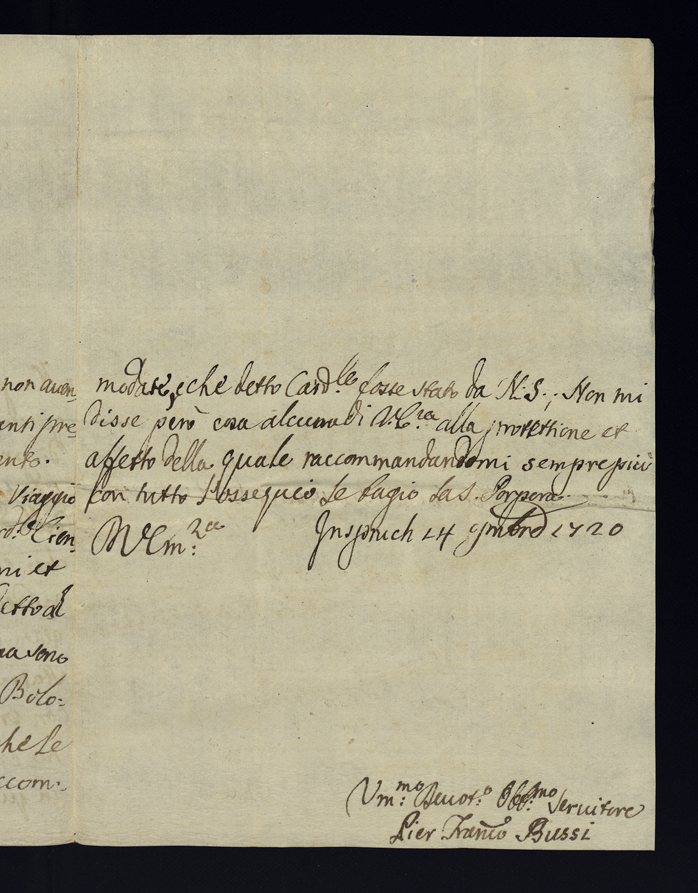 non auen=
anti pre=
ento.
Viaggio
rd.le Cien=
mi et
detto al
ma sono
Bolo=
che le
ccom=
modare, e che detto Card.le fosse stato da N. S.; Non mi
disse però cosa alcuna di V. Em.za alla protettione et
affetto della quale raccommandandomi sempre più
con tutto l'ossequio le bagio la S. Porpora
V. Em.za
Inspruch 14 9mbre 1720
Um.mo Deuot.o Obb.mo Seruitore
Pier Franco Bussi